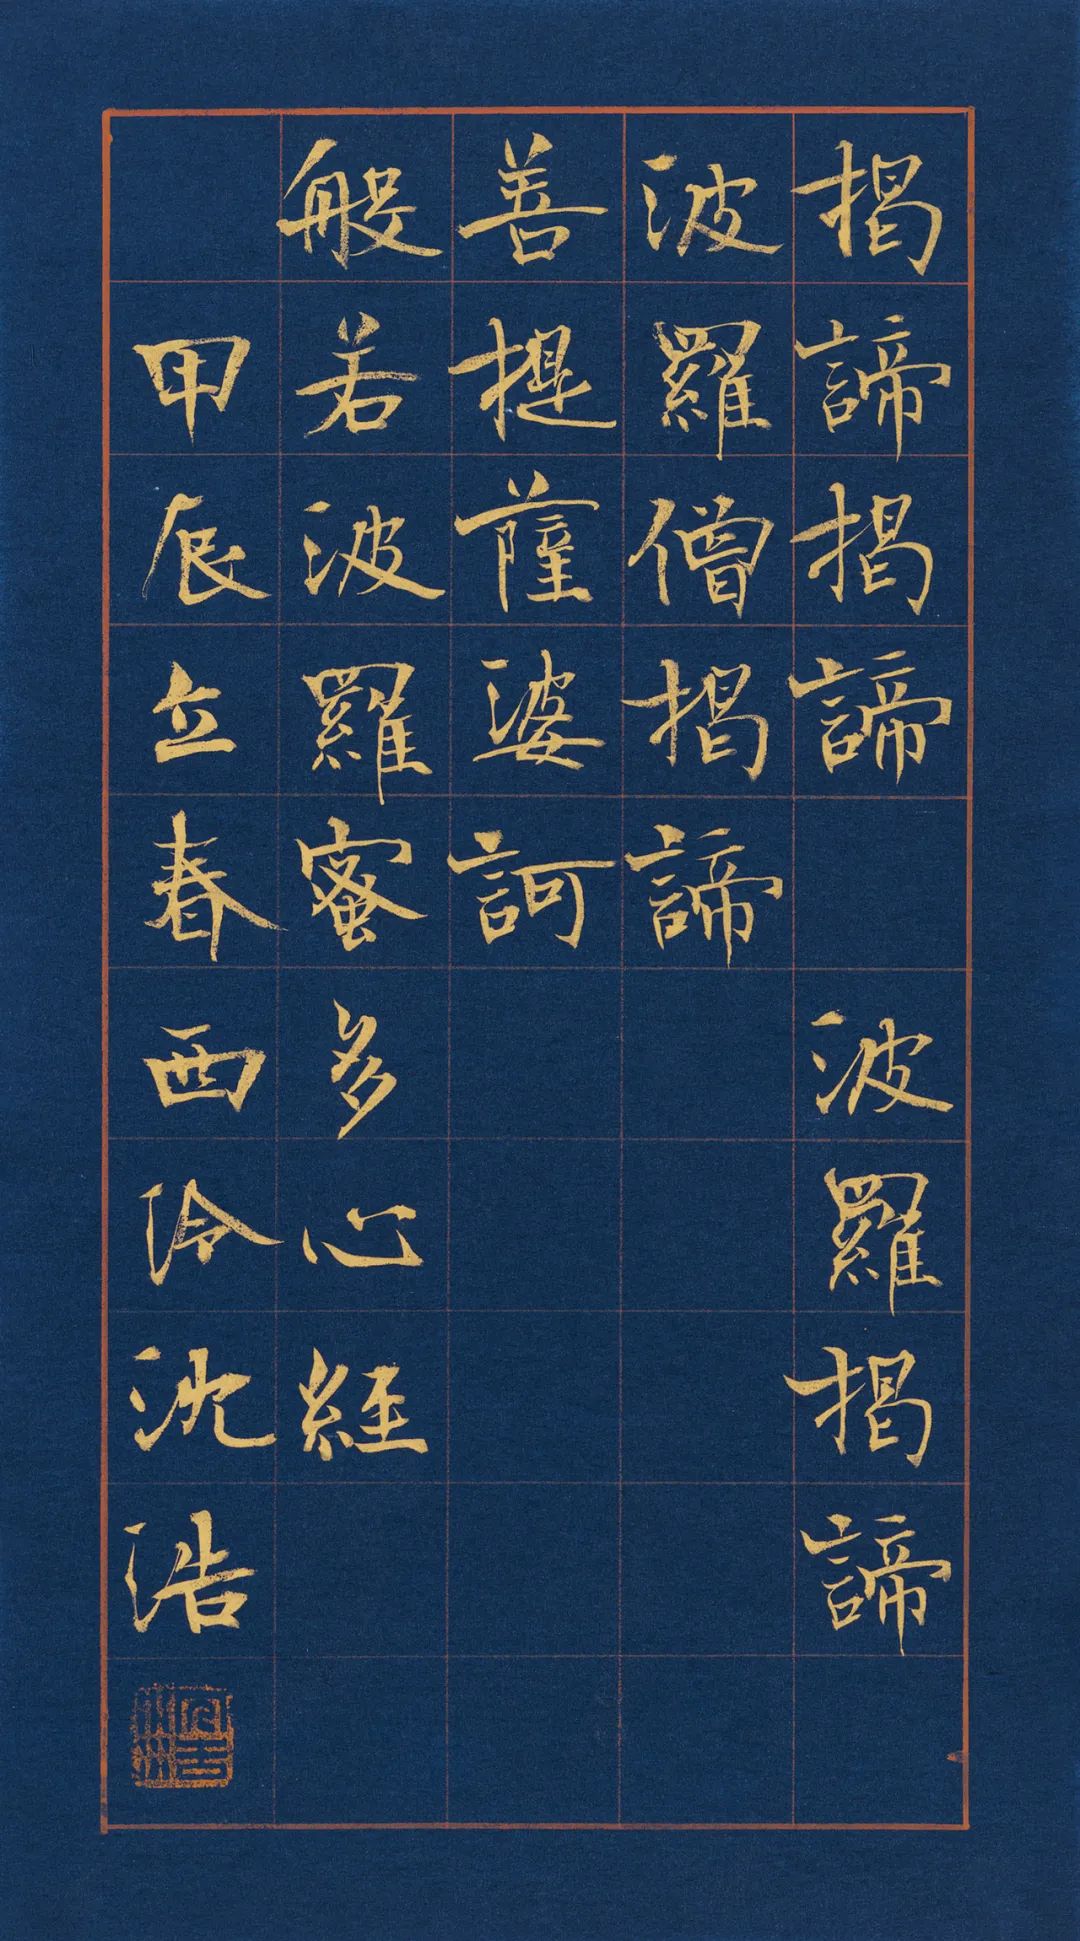 揭諦揭諦 波羅揭諦
波羅僧揭諦
善提薩婆訶
般若波羅蜜多心經
甲辰立春西泠沈浩